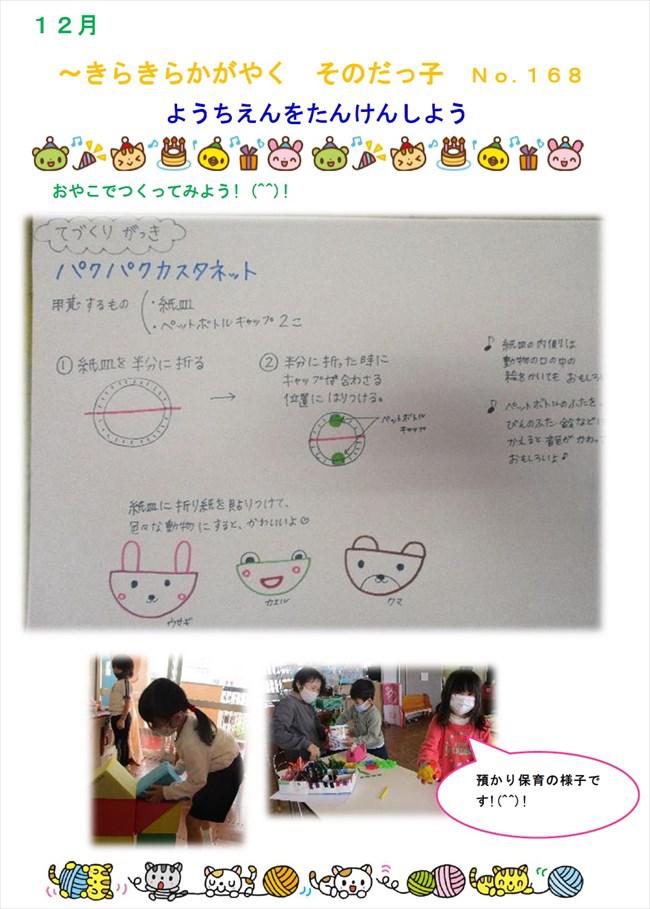 １２月
～きらきらかがやく　そのだっ子　Ｎｏ.１６８
ようちえんをたんけんしよう
おやこでつくってみよう！(^^)！
てづくり がっき
パクパクカスタネット
用意するもの
・紙皿
・ペットボトルキャップ 2こ
① 紙皿を半分に折る
② 半分に折った時に
キャップが合わさる
位置にはりつける。
ペットボトル
キャップ
♪ 紙皿の内側は
動物の口の中の
絵をかいても おもしろ
♪ ペットボトルのふたを
びんのふた・鈴などに
かえると音色が かわって
おもしろいよ♪
紙皿に折り紙を貼りつけて、
色々な動物にすると、かわいいよ☺
ウサギ
カエル
クマ
預かり保育の様子で
す！(^^)！